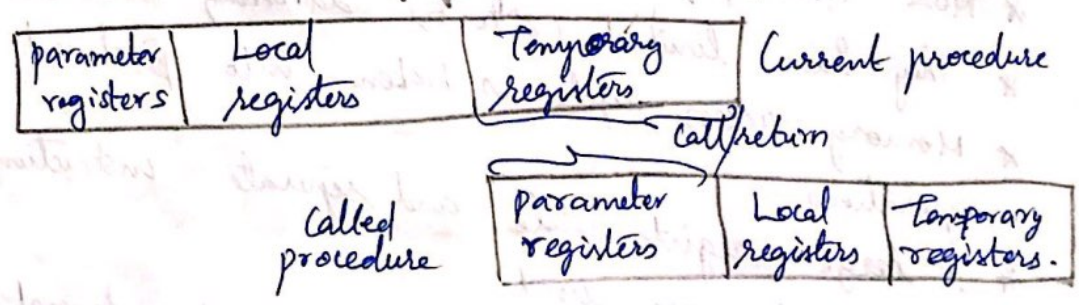 parameter registers
Local registers
Temporary registers.
Current procedure
Call/return
Called procedure
parameter registers
Local registers
Temporary registers.